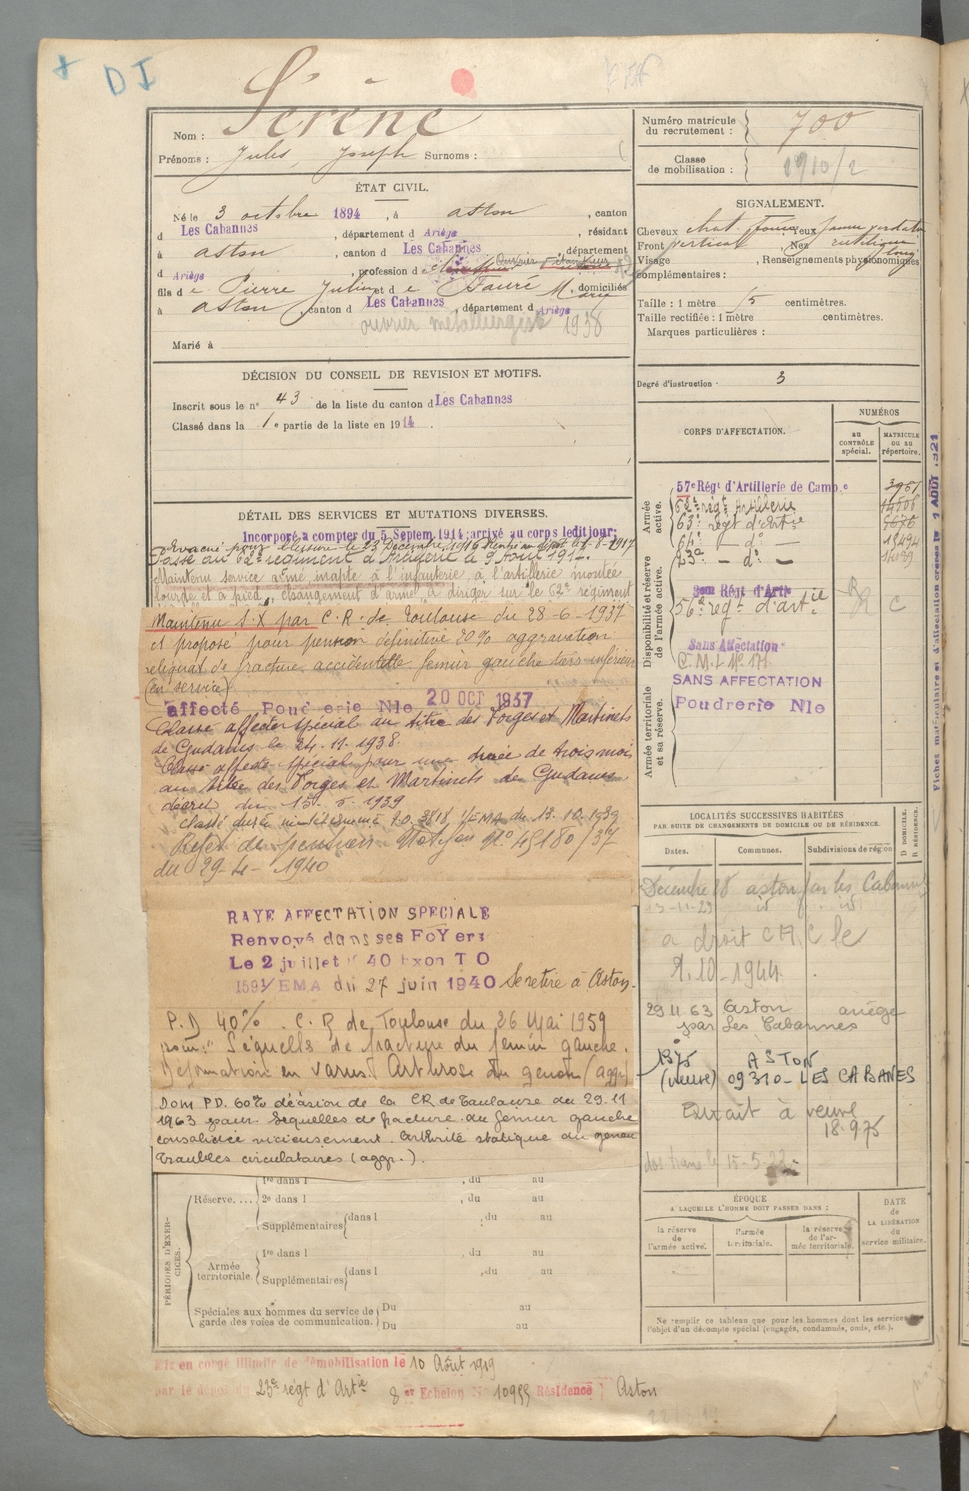 + DI
Nom : Sérène
Prénoms : Jules, Joseph Surnoms :
ÉTAT CIVIL.
Né le 3 octobre 1894, à Aston, canton
d Les Cabannes, département d Ariège, résidant
à Aston, canton d Les Cabannes département
d Ariège, profession d
fils de Pierre Julien et de Faure Marie, domiciliés
à Aston, canton d Les Cabannes, département d Ariège
ouvrier metallurgiste 1938
Marié à
DÉCISION DU CONSEIL DE REVISION ET MOTIFS.
Inscrit sous le nº 43 de la liste du canton d Les Cabannes
Classé dans la 1e partie de la liste en 1914.
DÉTAIL DES SERVICES ET MUTATIONS DIVERSES.
Incorporé à compter du 5 Septem. 1914; arrivé au corps ledit jour;
Evacué pour blessure le 23 Décembre 1916 Rentré au dépôt le
Passé au 62e régiment d'Artillerie le
Maintenu service armé, inapte à l'infanterie, à l'artillerie montée
lourde et à pied, changement d'arme, à diriger sur le 62e régiment
Maintenu S.X par C.R. de Toulouse du 28-6-1937
et proposé pour pension définitive 30% aggravation
reliquat de fracture accidentelle femur gauche tiers inférieur
(en service)
affecté Poudrerie Nle 20 OCT 1937
Classé affecté spécial au titre des Forges et Martinets
de Gudanes le 24.11.1938.
Classé affecté spécial pour une durée de trois mois
au titre des Forges et Martinets de Gudanes
décret du
Rejet de pension Notif on Nº 45180/37
du 29-4-1940
RAYE AFFECTATION SPECIALE
Renvoyé dans ses FoYers
Le 2 juillet 40 Exon T O
1591/EMA du 27 juin 1940 Se retire à Aston.
P.D 40%. C.R de Toulouse du 26 Mai 1959
pour: "Séquelles de fracture du fémur gauche.
Déformation en varus. Arthrose du genou (aggr)
Dom PD. 60% décision de la CR de Toulouse du 29.11
1963 pour Sequelles de fracture du femur gauche
consolidée vicieusement. arthrite statique du genou
troubles circulatoires (aggr.).
PÉRIODES D'EXERCICES.
1re dans l , du au
Réserve.... 2e dans l , du au
Supplémentaires dans l , du au
Armée territoriale. 1re dans l , du au
Supplémentaires dans l , du au
Spéciales aux hommes du service de garde des voies de communication. Du au
Du au
Mis en congé illimité de démobilisation le 10 Août 1919
par le dépôt du 23e régt d'Artie 8e Echelon No 10955 Résidence Aston
Numéro matricule du recrutement : 700
Classe de mobilisation : 1910/2
SIGNALEMENT.
Cheveux chat. foncé Yeux
Front vertical, Nez rectiligne
Visage long, Renseignements physionomiques
complémentaires :
Taille : 1 mètre centimètres.
Taille rectifiée : 1 mètre centimètres.
Marques particulières :
Degré d'instruction. 3
CORPS D'AFFECTATION.
NUMÉROS
au CONTRÔLE spécial.
MATRICULE OU AU répertoire.
Armée active.
57e Régt d'Artillerie de Campe
62e régt Artillerie
63e régt d'artie
64e - do -
23e - do -
Disponibilité et réserve de l'armée active.
56e régt d'artie R C
Sans Affectation
C.M.I. Nº 171
Armée territoriale et sa réserve.
SANS AFFECTATION
Poudrerie Nle
Fiches matriculaire et d'affectation créées le 1 AOUT 1921
LOCALITÉS SUCCESSIVES HABITÉES
PAR SUITE DE CHANGEMENTS DE DOMICILE OU DE RÉSIDENCE.
Dates. Communes. Subdivisions de région D. DOMICILE. R. RÉSIDENCE.
Décembre 28 Aston par les Cabannes
13-11-29 id id
a droit CAC le
2.10-1944.
29 11 63 Aston ariège
par Les Cabannes
1975 ASTON
(veuve) 09310 - LES CABANES
Extrait à veuve
18.9.75
ÉPOQUE
A LAQUELLE L'HOMME DOIT PASSER DANS :
la réserve de l'armée active.
l'armée territoriale.
la réserve de l'armée territoriale.
DATE de LA LIBÉRATION du service militaire.
Ne remplir ce tableau que pour les hommes dont les services
l'objet d'un décompte spécial (engagés, condamnés, omis, etc.).